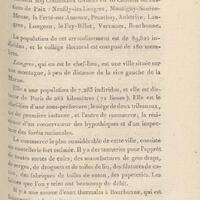 sion de Paix : Neuilly-les-Langres, Montigny-Source-
Meuse, la Ferté-sur-Amance, Prauthoy, Auberive, Lan-
gres, Longeau, le Fay-Billot, Varennes, Bourbonne.
La population de cet arrondissement est de 89,821 in-
dividus, et le collége électoral est composé de 180 mem-
bres.
Langres, qui en est le chef-lieu, est une ville située sur
une montagne, à peu de distance de la rive gauche de la
Marne.
Elle a une population de 7,283 individus, et elle est dis-
tante de Paris de 281 kilomètres (72 lieues). Elle est le
chef-lieu d'une sous-préfecture; le siége de deux tribunaux,
de première instance, et l'autre de commerce; la rési-
dence d'un conservateur des hypothèques et d'un inspec-
teur des forêts nationales.
Le commerce le plus considérable de cette ville, consiste
en coutellerie fort estimée. Il y a des tanneries pour l'apprêt
de toutes sortes de cuirs; des manufactures de gros draps,
de serges, de droguets et de toiles de fils, des filatures de co-
ton, des fabriques de toiles de coton, des papeteries. Les
que l'on y teint ont beaucoup de débit.
Il y a une source d'eaux thermales à Bourbonne, qui est